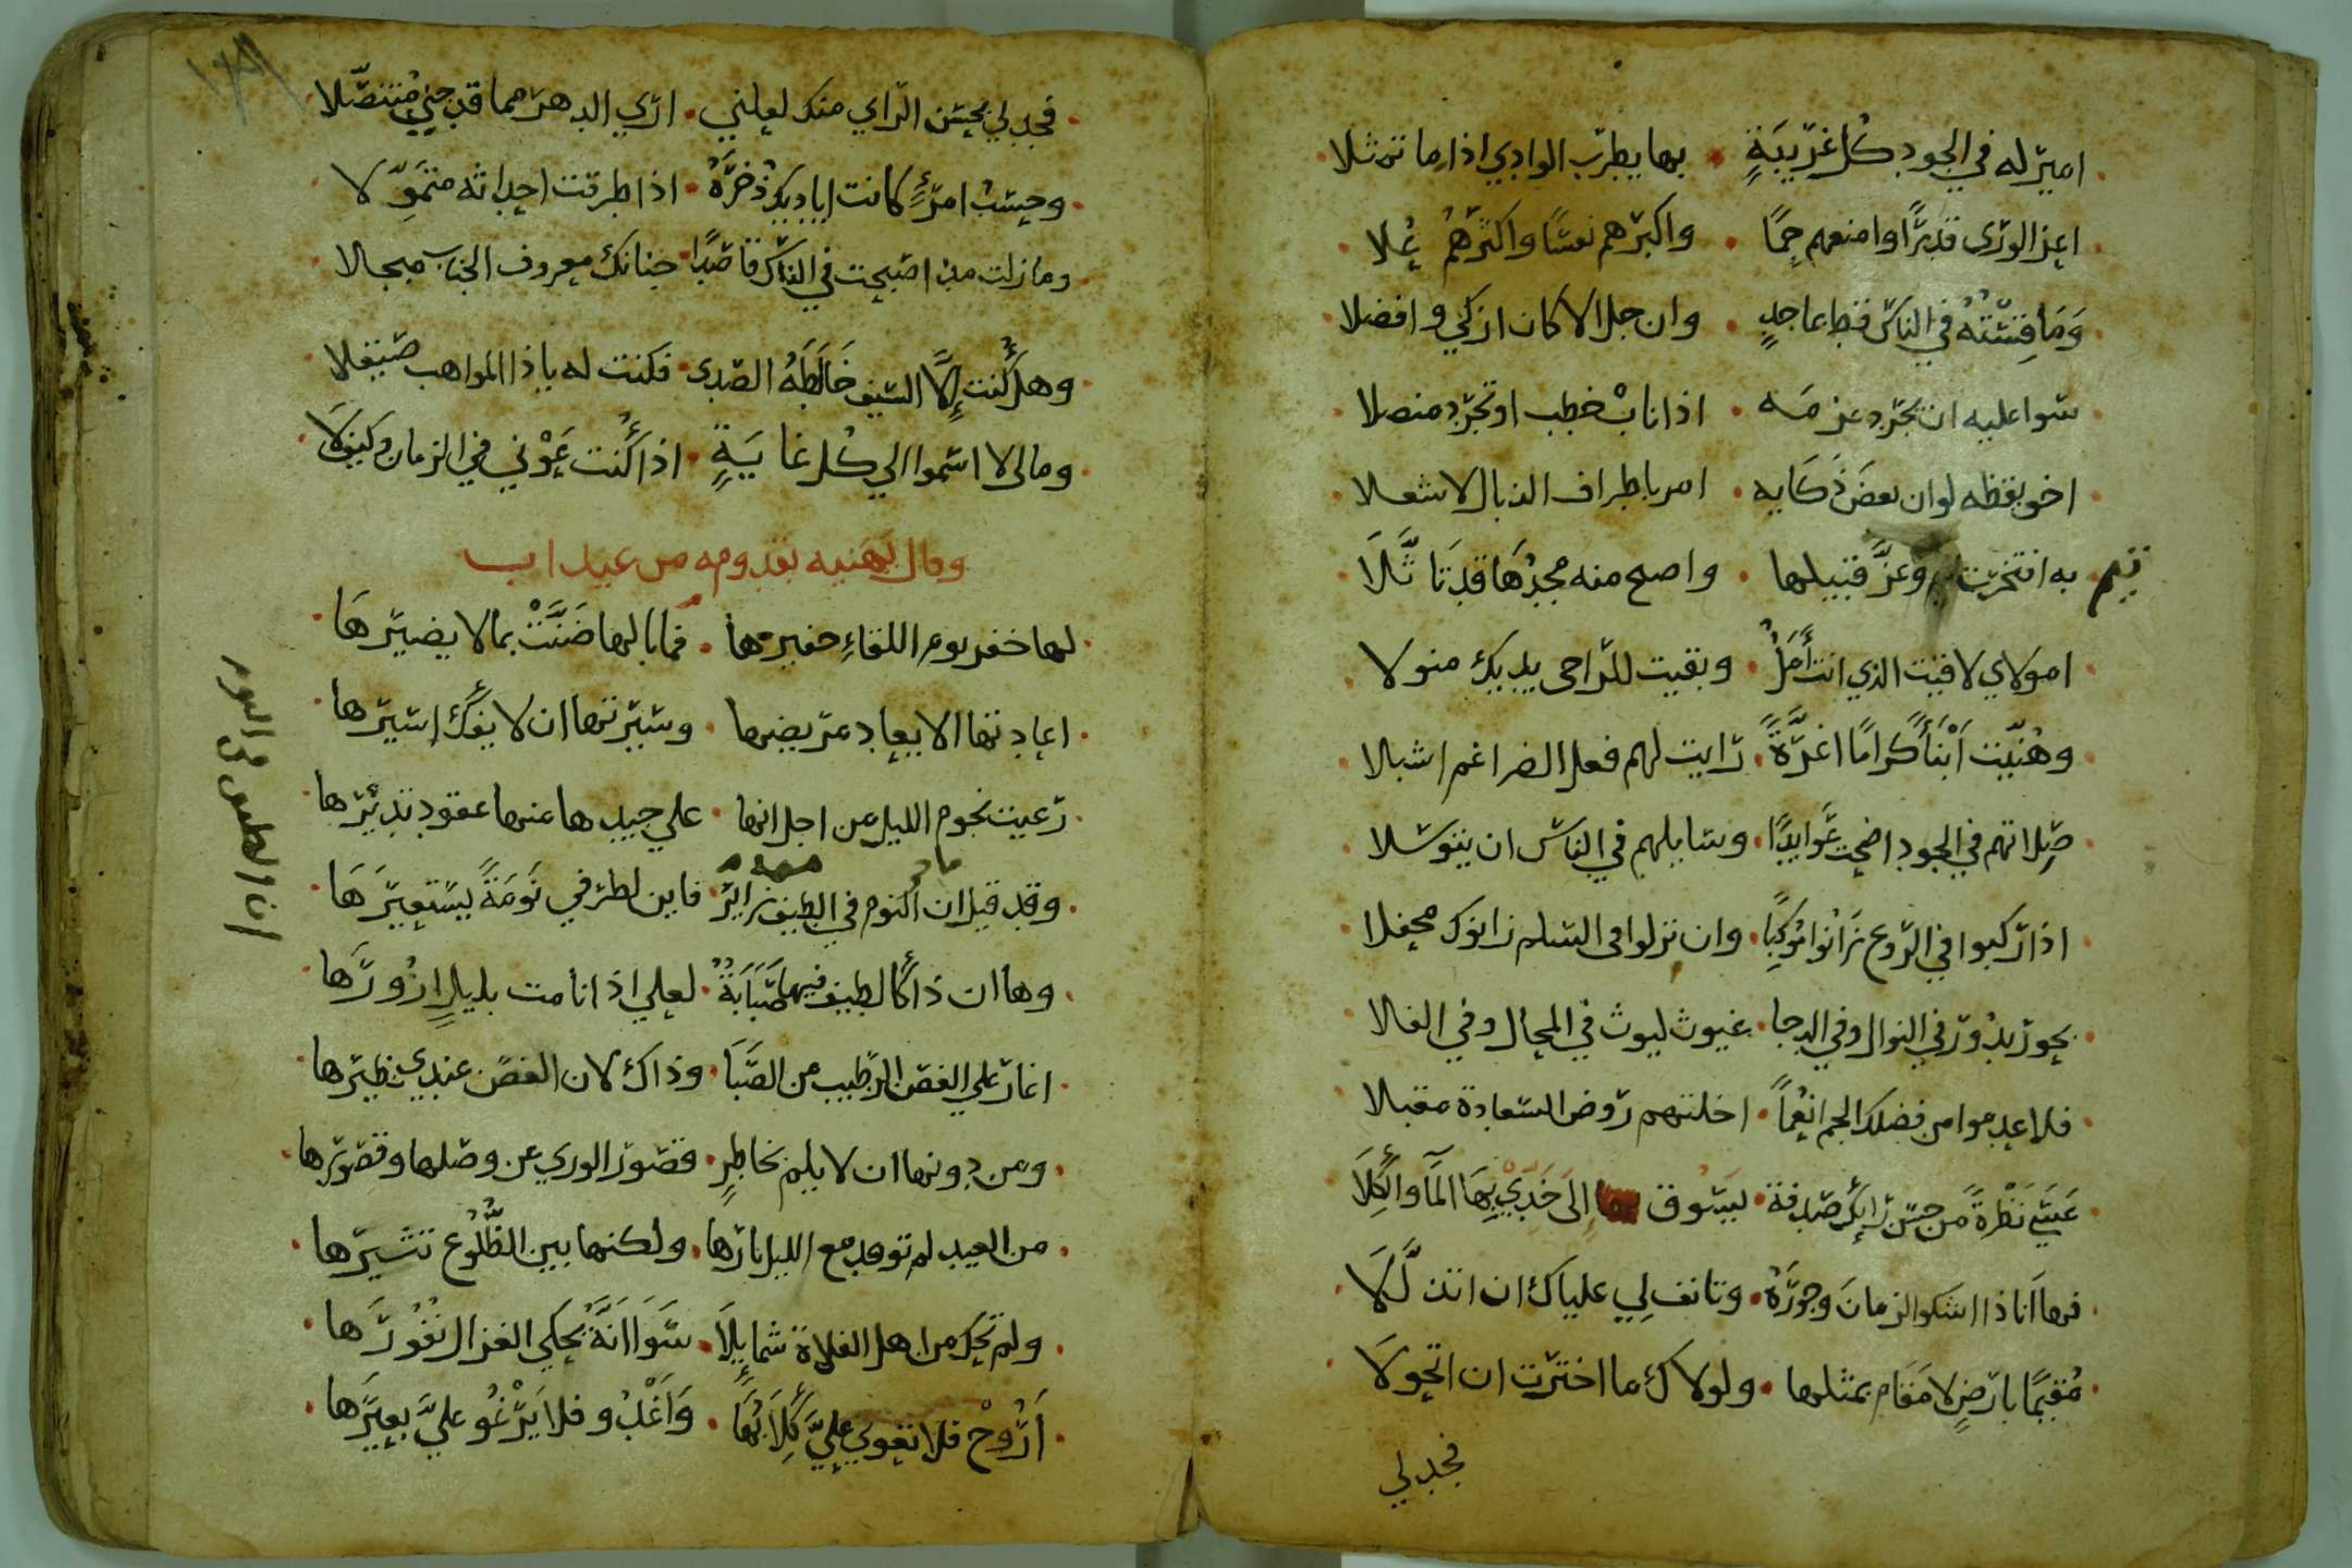 امير له في الجود كل غريبةٍ • بها يطرب الوادي اذا ما تمثلا
اعز الورى قدرًا وامنعهم حمًا • واكبرهم نفسًا واكثرهم علا
وَمَا قِسْتُهُ في الناس قط بماجدٍ • وان جل الا كان ازكي وافضلا
سوا عليه ان تجرد عزمه • اذا نابْ خطب او تجرد منصلا
اخو يقظه لوان بعضَ ذَكَايه • امر باطراف الذبال لاشعلا
به افتخرت وعزَّ قبيلها • واصبح منه مجدُهَا قد تَاثَّلَا
امولاي لاقيت الذي انت أملُ • وبقيت للراجى يديك منولا
وهُنيّت أبْنَأً كرامًا اغرَّةً • رايت لهم فعل الضراغم اشبالا
صِلاتهم في الجود اضحت عَوايدًا • وسايلهم في الناس ان يتوسلا
اذا ركبوا في الروع زَانُوا مَوكِبًا • وان نزلوا فى السلم زانوك محفلا
بحور بدُور في النوال وفي الدجا • غيوث ليوث في المحال وفي الفلا
فلا عدموا من فضلك الجم انعُماً • احلتهم روض السعادة مقبلا
عَسَي نَظْرةً من حسن رايك صدفة • ليسوق إلى جَدْبِيْ بِهَا المآ والكِلَا
فها أنا ذا اشكوا الزمانَ وجورَهُ • وتانف لِي علياك ان اتذلَّلَا
مُقيمًا بارضٍ لا مَقَام بمثلها • ولولاك ما اخترت ان اتحولَا
فجد لي
فجد لي بحسن الراي منك لعلني • اري الدهر مما قد جني مُتنصّلا
وحسبُ امرءٍ كانت اياديك ذُخرَهُ • اذا طرقت احداثه متمَوِّلا
وما زلت مذ اصبحت في الناس قاصدًا • جنانك معروف الجناب مبجلا
وهل كُنت إلَّا السيف خَالَطَهُ الصدى • فكنت له ياذا المواهب صيقلا
ومالى لا اسموا الي كُل غايَةٍ • اذا كُنت عَوْني في الزمان وكيف لَا
وقال يهنيه بقدومه من عيداب
لها خفر يوم اللقاءِ خفيرها • فما بالها ضَنَّتْ بما لا يضيرهَا
اعادتها الا يعاد مريضها • وسيرتها ان لا يفك اسيرها
رعيت نجوم الليل من اجل انها • علي جيدها منها عقود تديرها
وقد قيل ان النوم في الطيف زايرُ • فاين لطرفي نَومَةً يستعيرَهَا
وها ان ذا كالطيف فيها صَبَابَةً • لعلي اذا نامت بليلٍ ازُورَها
اغار علي الغصن الرطيب من الصَّبَا • وذاك لان الغصن عندي نظيرها
ومن دونها ان لا يلم بخاطرٍ • قصور الوري عن وصلها وقصورها
من الغيد لم توقد مع الليل نارها • ولكنها بين الظُّلُوع تثيرها
ولم تحك من اهل الفلاة شمايلَا • سَوَا انَّهُ يحكي الغزال نُفُورَها
أرُوحْ فلا تعوي عليَّ كِلَابُهَا • وَأغْدُو فلا يَرْغُو عليَّ بعيرَها